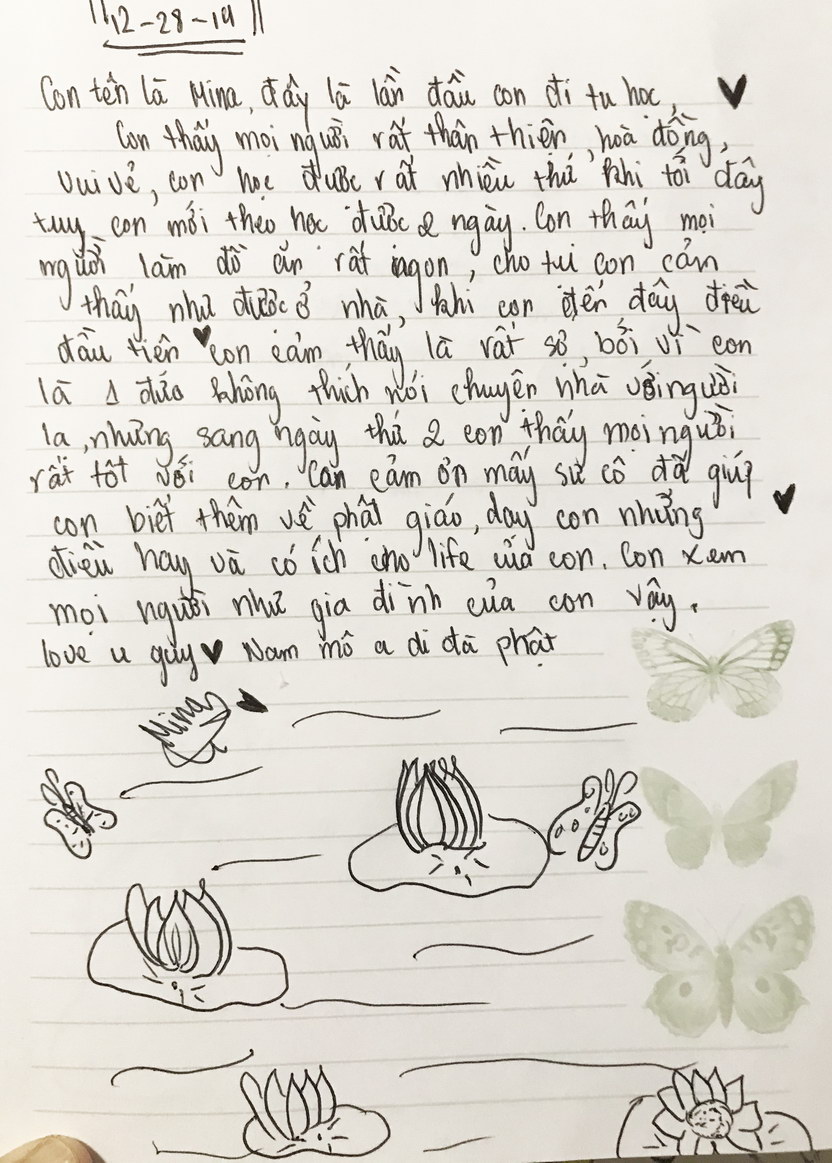 12-28-19
Con tên là Mina, đây là lần đầu con đi tu học,
Con thấy mọi người rất thân thiện, hoà đồng,
vui vẻ, con học được rất nhiều thứ khi tới đây
tuy con mới theo học được 2 ngày. Con thấy mọi
người làm đồ ăn rất ngon, cho tui con cản
thấy như được ở nhà, khi con đến đây điều
đầu tiên con cảm thấy là rất sợ, bởi vì con
là 1 đứa không thích nói chuyện nhà với người
lạ, nhưng sang ngày thứ 2 con thấy mọi người
rất tốt với con. Con cảm ơn mấy sư cô đã giúp
con biết thêm về phật giáo, dạy con những
điều hay và có ích cho life của con. Con xem
mọi người như gia đình của con vậy.
love u guy Nam mô a di đà phật
Mina